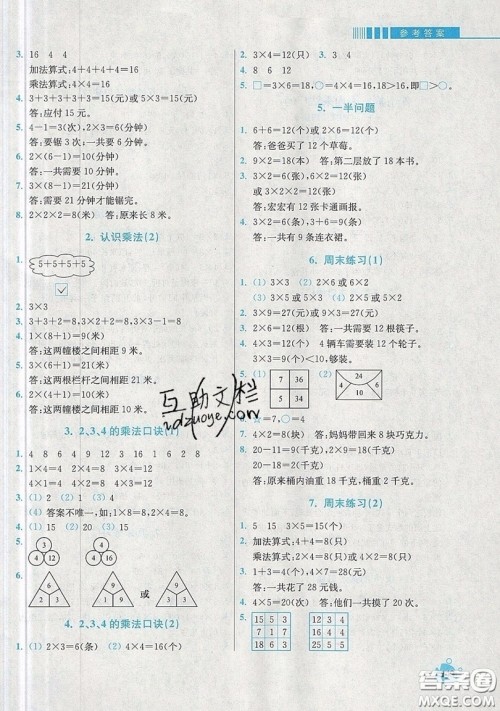 参考答案
3. 16 4 4
加法算式:4+4+4+4=16
乘法算式:4×4=16
4. 3+3+3+3+3=15(元)或 5×3=15(元)
答:应付 15 元。
5. 4-1=3(次),3×2=6(分钟)
答:要锯 3 次;一共要 6 分钟。
6. 2×(6-1)=10(分钟)
答:一共需要 10 分钟。
7. 3×(8-1)=21(分钟)
答:需要 21 分钟才能锯完。
8. 2×2×2=8(米) 答:原来长 8 米。
2. 认识乘法(2)
1. 5+5+5+5
✓
2. 3×3
3. 3+3+2=8,3×2+2=8,3×3-1=8
4. 1×(8+1)=9(米)
答:这两幢楼之间相距 9 米。
5. 3×(6+1)=21(米)
答:这两根栏杆之间相距 21 米。
6. 2×(4+1)=10(米)
答:这两幢楼之间相距 10 米。
3. 2、3、4 的乘法口诀(1)
1. 4 8 6 4 9 12 8 12 16
2. 2 4 8 3 6 9 4 8 12
3. (1) 2 (2) 1 (3) 4
(4) 答案不唯一,如:1×8=8,2×4=8
4. (1) 15 (2) 15
5. 4 3 12
4 4 16
6. 6 2 3
9 3 3
或
9 1 9
4. 2、3、4 的乘法口诀(2)
1. (1) 2×3=6(条) (2) 4×4=16(条)
2. 3×4=12(只) 3. 3 4
4. 8 6 12
5. □=3×6=18,○=4×4=16,18>16,即□>○。
5. 一半问题
1. 6+6=12(个)或 2×6=12(个)
答:爸爸买了 12 个草莓。
2. 9×2=18(本) 答:第二层放了 18 本书。
3. 3×2=6(张),6×2=12(张)
或 3×2×2=12(张)
答:宏宏有 12 张卡通画报。
4. 3×2=6(条),6+3=9(条)
答:一共有 9 条连衣裙。
6. 周末练习(1)
1. (1) 3×3 (2) 2×6 或 6×2
(3) 3×5 或 5×3 (4) 2×3 或 3×2
2. 2×6=12(根) 答:一共需要 12 根筷子。
3. 3×4=12(个) 4 辆车需要装 12 个轮子。
4. 3×3=9(个),9<10,够装。
5. 7 36
5 34
34
4 10
6
6.
7. 4×2=8(块) 答:妈妈带回来 8 块巧克力。
8. 20-11=9(千克),9×2=18(千克)
20-18=2(千克)
答:原来桶内油重 18 千克,桶重 2 千克。
7. 周末练习(2)
1. 5 15 3×5=15(个)
2. 加法算式:4+4=8(只)
乘法算式:2×4=8(只)或 4×2=8(只)
3. 4+3=7(个),4×7=28(元)
答:一共花了 28 元钱。
4. 4×5=20(次) 答:他们一共摸了 20 次。
5. 15 5 3
7 1 7
9 6 3
18 3 6
6 1 6
16 4 4
互助文栏
答案圈
MXQE.COM